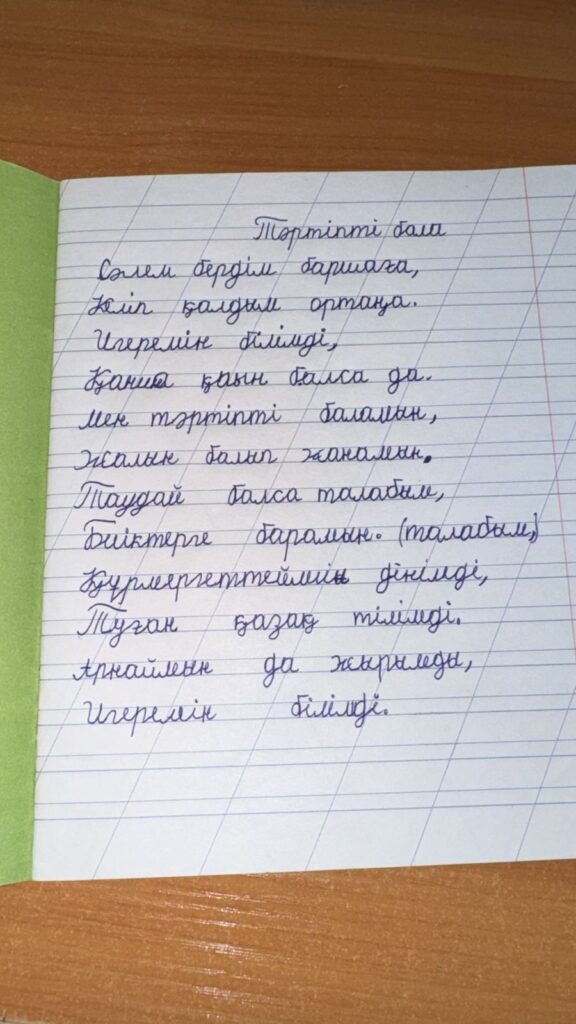 Тәртіпті бала
Сәлем бердім баршаға,
Келіп қалдым ортаңа.
Игеремін білімді,
Қанша қиын балса да.
Мен тәртіпті баламын,
Жалын балып жанамын.
Таудай балса талабым,
Биіктерге барамын. (талабым,)
Құрмергеттеймін дінімді,
Туған қазақ тілімді.
Арнаймын да жырымды,
Игеремін білімді.